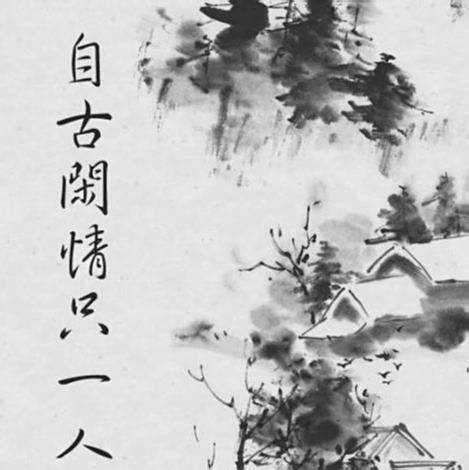 自古閑情只一人